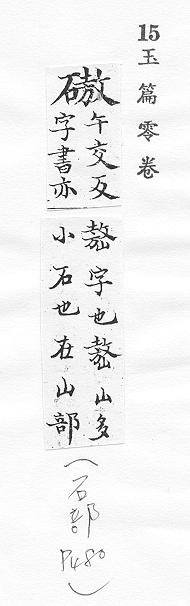 15玉篇零卷
磝
午交反
字書亦
嶅字也嶅山多
小石也在山部
(石部
P480)